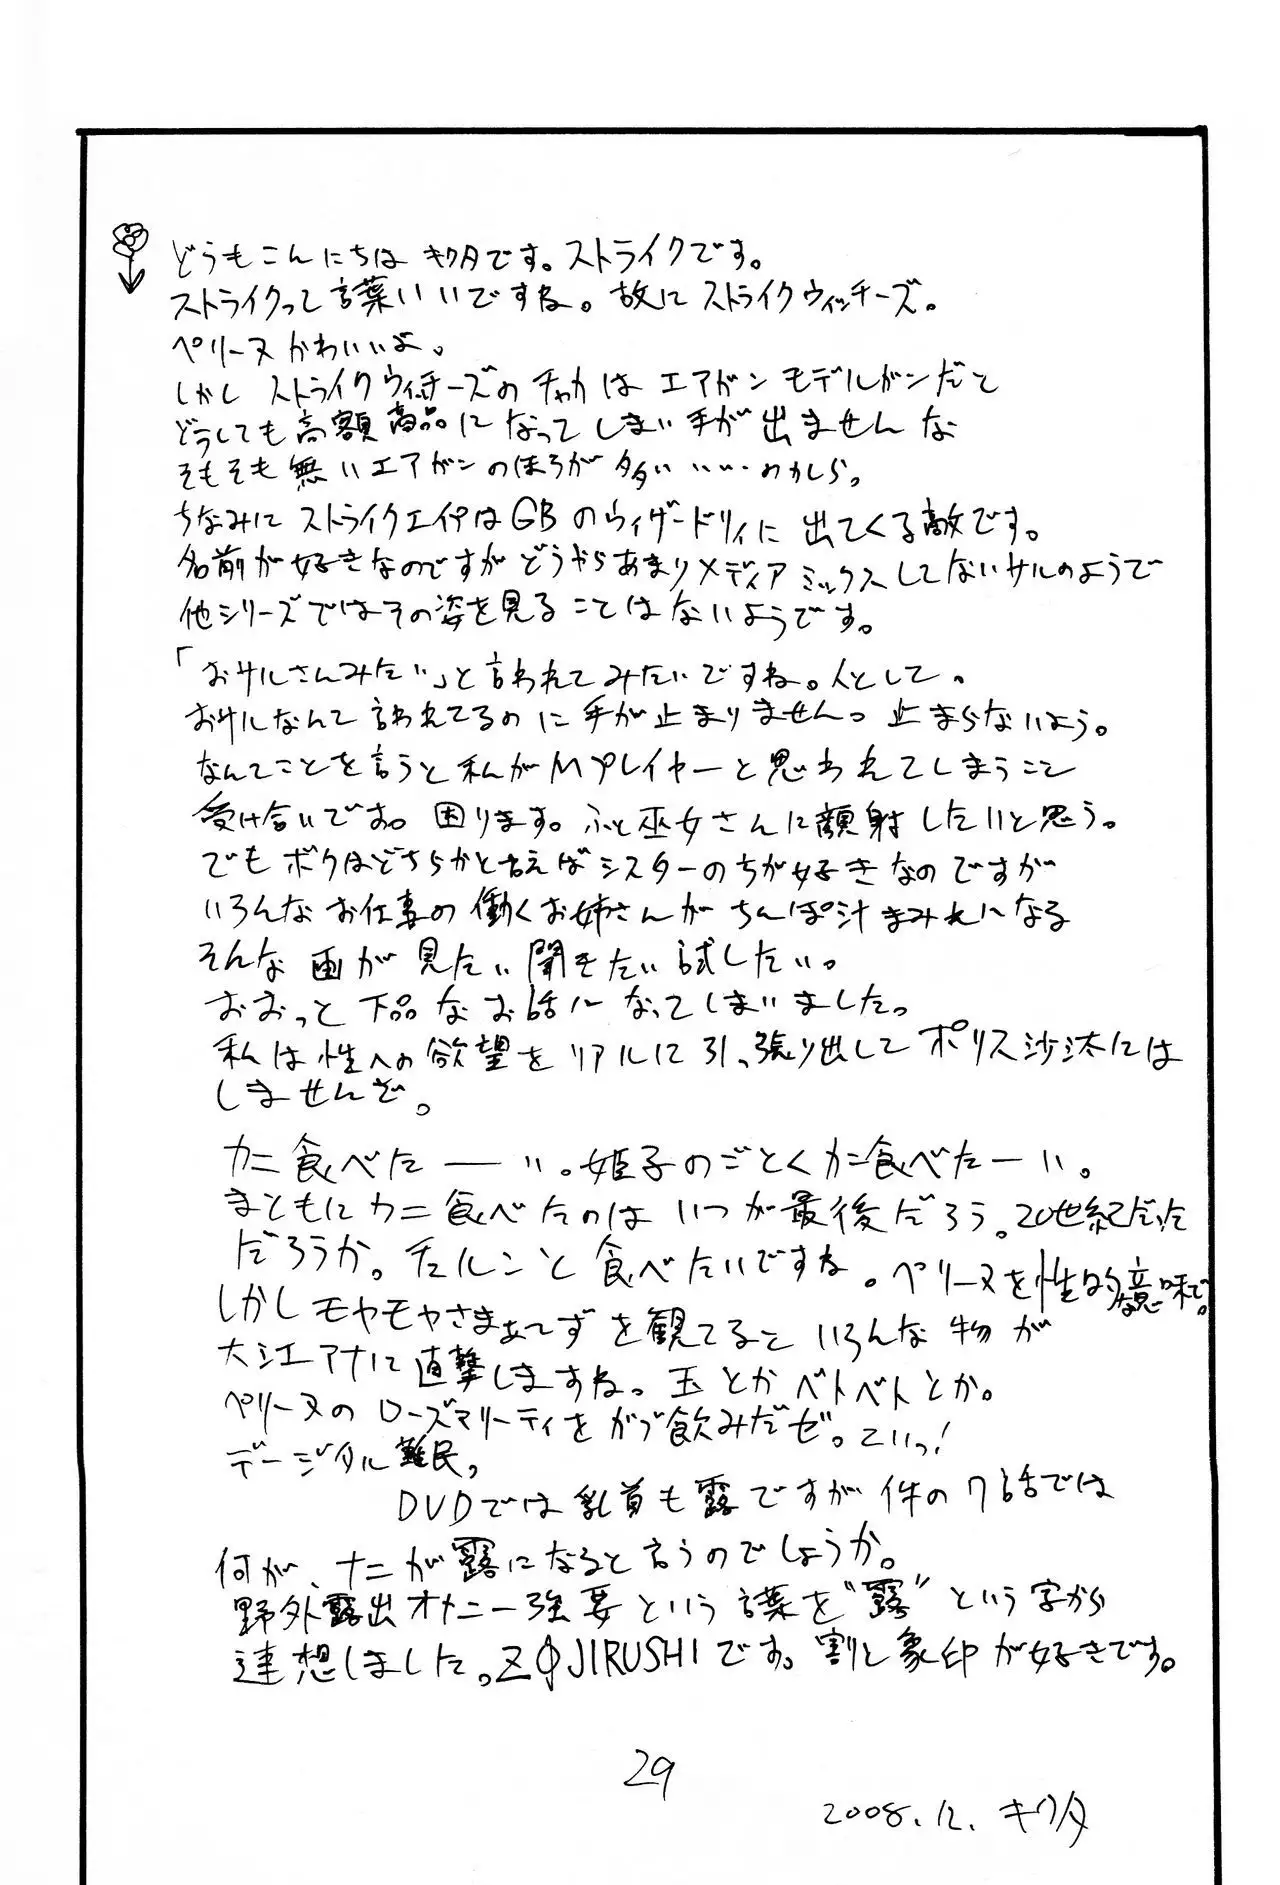 どうもこんにちは キクタです。ストライクです。
ストライクって言葉いいですね。故にストライクウィッチーズ。
ペリーヌかわいいよ。
しかしストライクウィッチーズのチャカは エアガン モデルガンだと
どうしても高額商品になってしまい手が出ませんな
そもそも無いエアガンのほうが多い・・・・わかしら。
ちなみに ストライクエイプはGBのウィザードリィに出てくる敵です。
名前が好きなのですがどうやらあまりメディアミックスしてないサルのようで
他シリーズではその姿を見ることはないようです。
「おサルさんみたい」と言われてみたいですね。人として。
おサルなんて言われてるのに手が止まりません。止まらないよう。
なんてことを言うと私がMプレイヤーと思われてしまうこと
受け合いです。困ります。ふと巫女さんに顔射したいと思う。
でもボクはどちらかと言えばシスターのちが好きなのですが
いろんなお仕事の働くお姉さんがちんぽ汁まみれになる
そんな画が見たい聞きたい試したい。
おおっと下品なお話になってしまいました。
私は性への欲望をリアルに引っ張り出してポリス沙汰には
しませんぞ。
カニ食べたーい。姫子のごとくカニ食べたーい。
まともにカニ食べたのはいつが最後だろう。20世紀だった
だろうか。チェルシーと食べたいですね。ペリーヌを性的な意味で。
しかしモヤモヤさまぁ〜ずを観てるといろんな物が
大江アナに直撃しますね。玉とかベトベトとか。
ペリーヌのローズマリーティをがぶ飲みだぜ。こいっ!
デージタル難民。
DVDでは乳首も露ですが件の7話では
何が、ナニが露になると言うのでしょうか。
野外露出オナニー強要という言葉を“露”という字から
連想しました。ZOJIRUSHIです。割と象印が好きです。
29
2008.12. キクタ